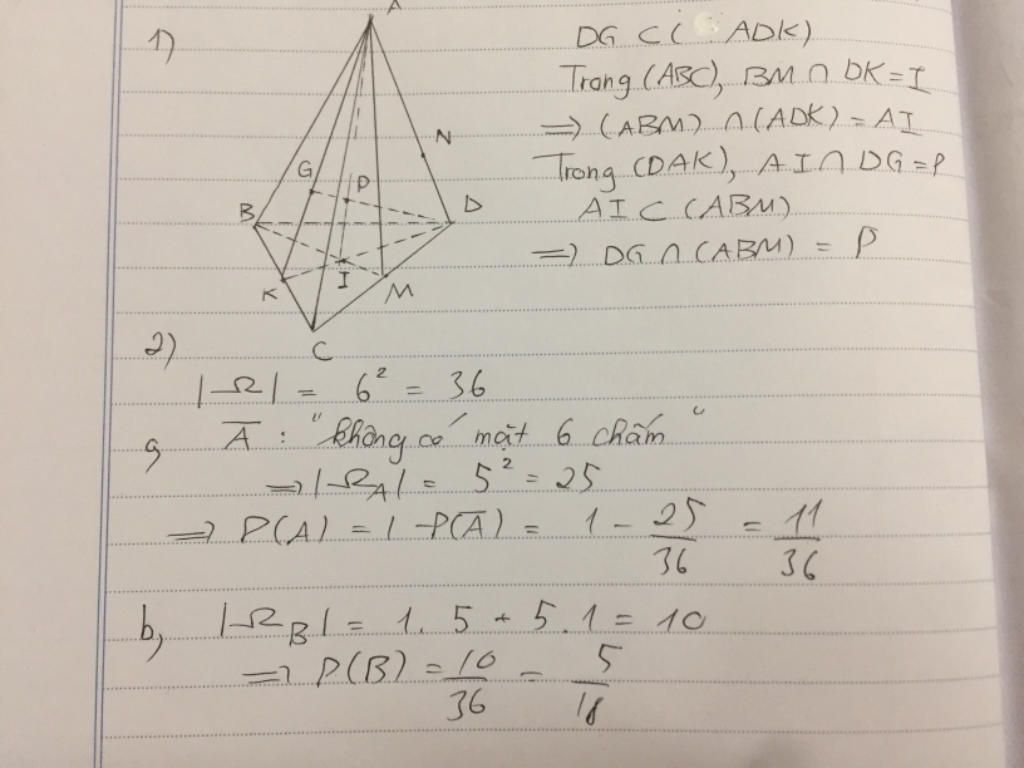 1)
A
N
G
P
B
D
K
I
M
C
DG ⊂ ( ADK)
Trong (ABC), BM ∩ DK = I
⇒ (ABM) ∩ (ADK) = AI
Trong (DAK), AI ∩ DG = P
AI ⊂ (ABM)
⇒ DG ∩ (ABM) = P
2)
|Ω| = 6² = 36
a, Ā : "không có mặt 6 chấm"
⇒ |Ω_A| = 5² = 25
⇒ P(A) = 1 - P(Ā) = 1 - 25/36 = 11/36
b, |Ω_B| = 1. 5 + 5.1 = 10
⇒ P(B) = 10/36 = 5/18